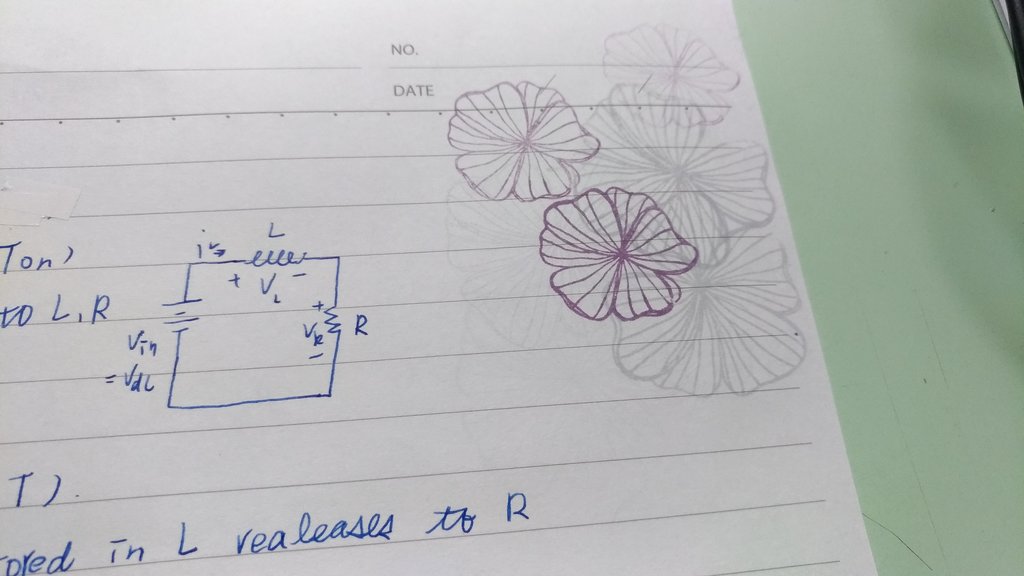 NO.
DATE
Ton)
i L
+ VL -
to L, R
+
VR R
-
Vin
= Vdc
T).
ored in L realeases to R